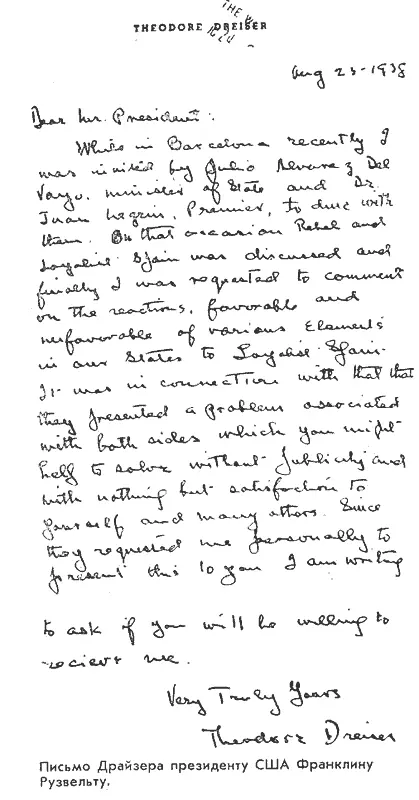 THE W
THEODORE DREISER
Aug 23-1938
Dear Mr. President:
While in Barcelona recently I
was invited by Julio Alvarez Del
Vayo, minister of State and Dr.
Juan Negrin, Premier, to dine with
them. On that occasion Rebel and
Loyalist Spain was discussed and
finally I was requested to comment
on the reactions, favorable and
unfavorable of various Elements
in our States to Loyalist Spain.
It was in connection with that that
they presented a problem associated
with both sides which you might
help to solve without publicity and
with nothing but satisfaction to
yourself and many others. Since
they requested me personally to
present this to you I am writing
to ask if you will be willing to
recieve me.
Very Truly Yours
Theodore Dreiser
Письмо Драйзера президенту США Франклину
Рузвельту.